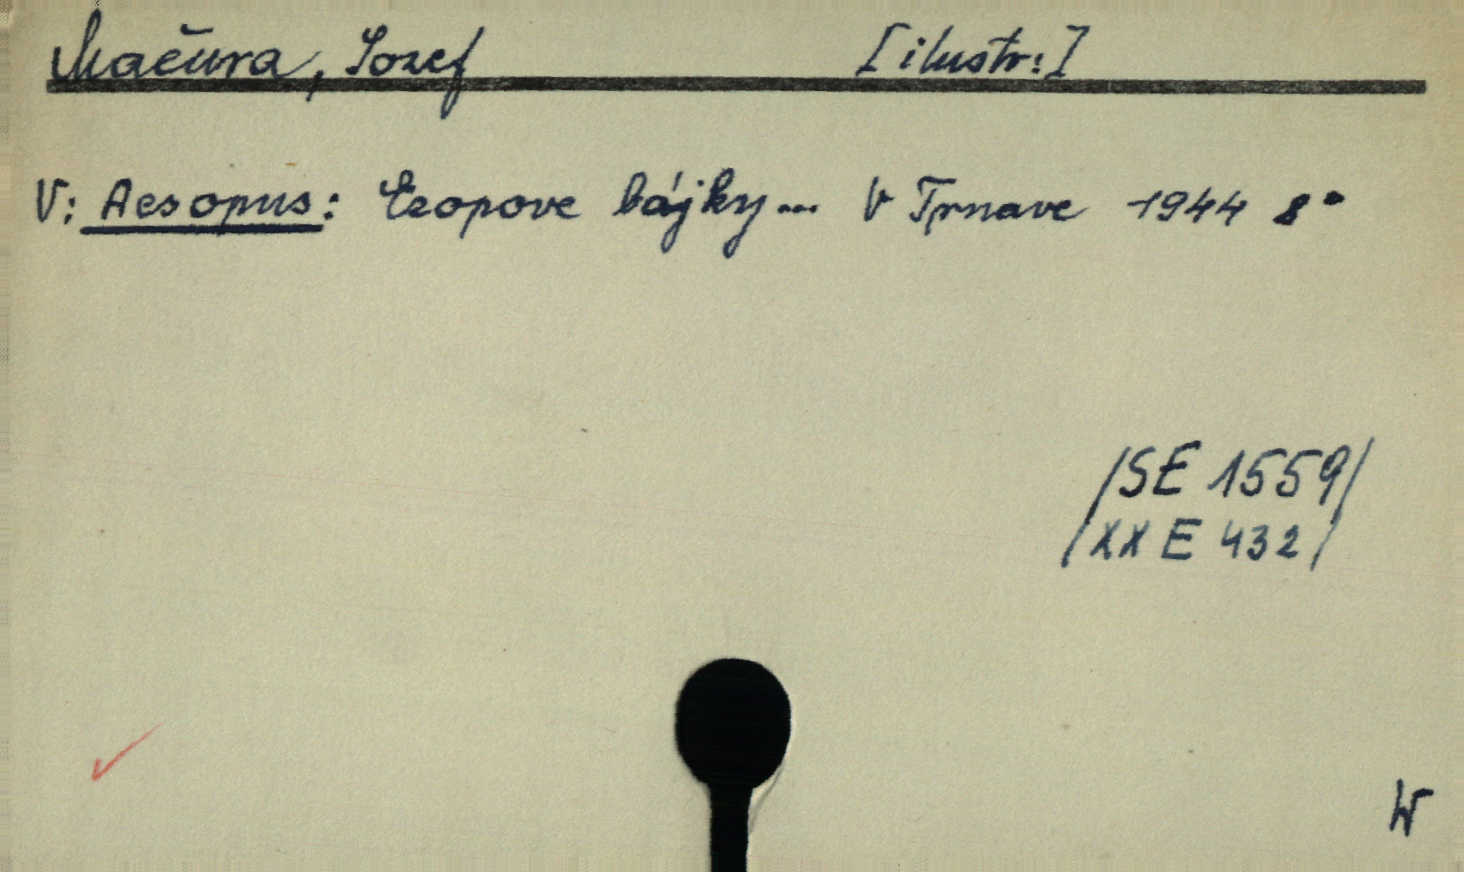 Mačura, Jozef [ilustr:]
V: Aesopus: Ezopove bájky... V Trnave 1944 8°
/SE 1559/
/XX E 432/
W